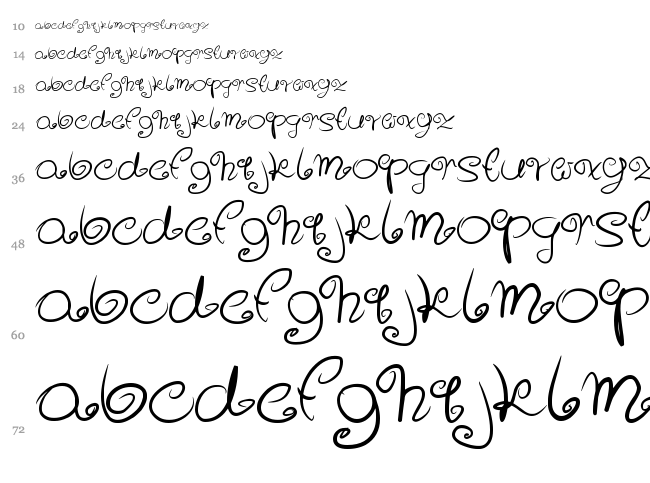 10 abcdefghijklmopqrstuvwxyz
14 abcdefghijklmopqrstuvwxyz
18 abcdefghijklmopqrstuvwxyz
24 abcdefghijklmopqrstuvwxyz
36 abcdefghijklmopqrstuvwxyz
48 abcdefghijklmopqrst
60 abcdefghijklmop
72 abcdefghijklm